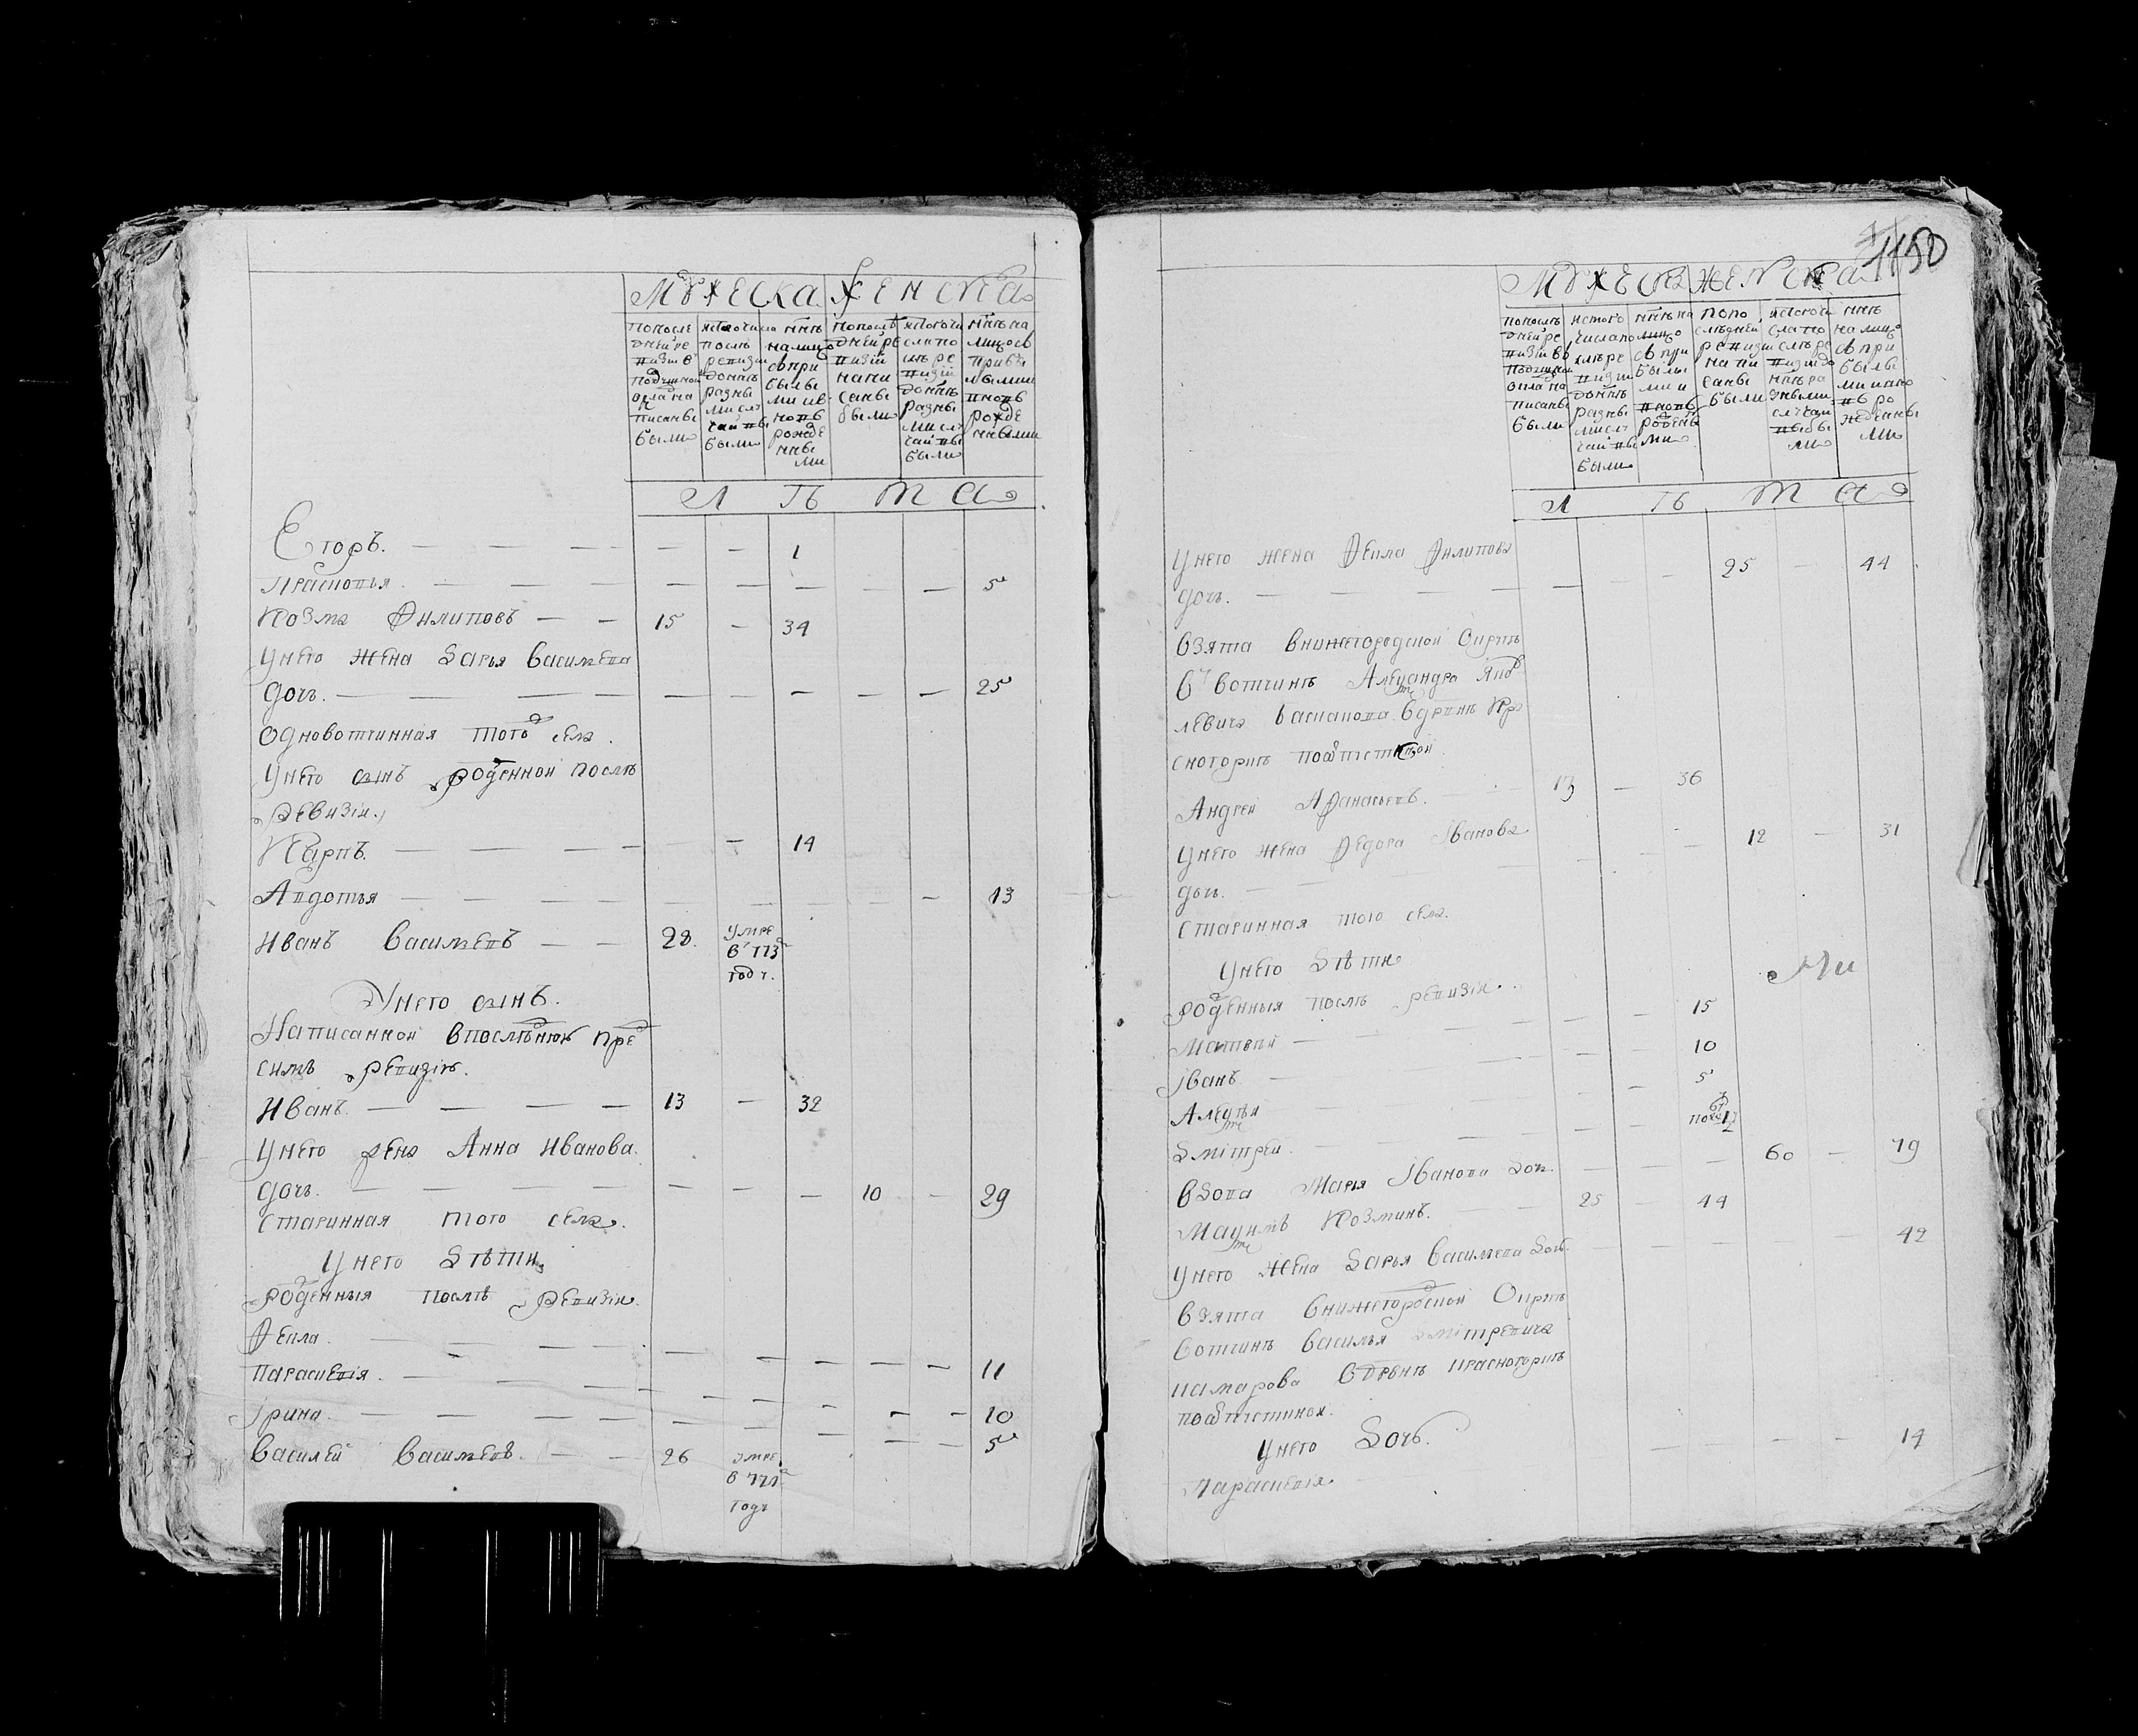 МУЖЕСКА ЖЕНСКА
попосле
дней ре
визи в
подушной
оклад на
писаны
были
ис того числа
после
ревизии
до ныне
разны
ми слу
чаи вы
были
ныне
на лицо
с при
былы
ми и в
новь
рожде
нны
ми
попосле
дней ре
визии
напи
саны
были
ис того чи
сла по
сле ре
визии
до ныне
разны
ми слу
чаи вы
были
ныне на
лицо с
прибы
лыми
и вновь
рожде
нными
Л Ѣ Т А
Егоръ 1
Прасковья 5
Козма Филиповъ 15 34
У него жена Дарья Васильева
дочь 25
Одновотчинная того села
У него сынъ рожденной послѣ
ревизіи
Карпъ 14
Авдотья 13
Иванъ Васильевъ 28 умре
в 773
году
У него сынъ
Написанной в последнюю пред
симъ ревизію
Иванъ 13 32
У него жена Анна Иванова
дочь 10 29
Старинная того села
У него дѣти
рожденныя послѣ ревизіи
Фекла 11
Параскевія 10
Ірина 5
Василей Васильевъ 26 умре
в 771
году
1150
МУЖЕСКА ЖЕНСКА
попослѣ
дней ре
визіи в
подушной
оклад на
писаны
были
ис того
числа по
слѣ ре
визии
до ныне
разны
ми слу
чаи вы
были
нынѣ на
лицо
с при
былы
ми и
вновь
рожены
ми
попо
слѣдней
ревизии
напи
саны
были
ис того чи
сла по
слѣ ре
визии до
нынѣ ра
зными
случаи
выбы
ли
нынѣ
на лицо
с при
былы
ми и вно
вь ро
жденны
ми
Л Ѣ Т А
У него жена Фекла Филипова 25 44
дочь
Взята в нижегородской округѣ
в вотчинѣ Александра Яков
левича в деревнѣ Кра
сногоркѣ
Андрей Афанасьевъ 17 36
У него жена Федора Іванова 12 31
дочь
Старинная того села
У него дѣти
рожденныя послѣ ревизіи
Матвей 15
Іванъ 10
Алексѣй 5
Дмітрей
Вдова Марья Іванова дочь 60 79
Максимъ Козминъ 25 44
У него жена Дарья Васильева дочь 42
Взята в нижегородской округѣ
вотчинѣ Василья Дмітревича
в деревнѣ красногоркѣ
У него дочь
Параскевія 14